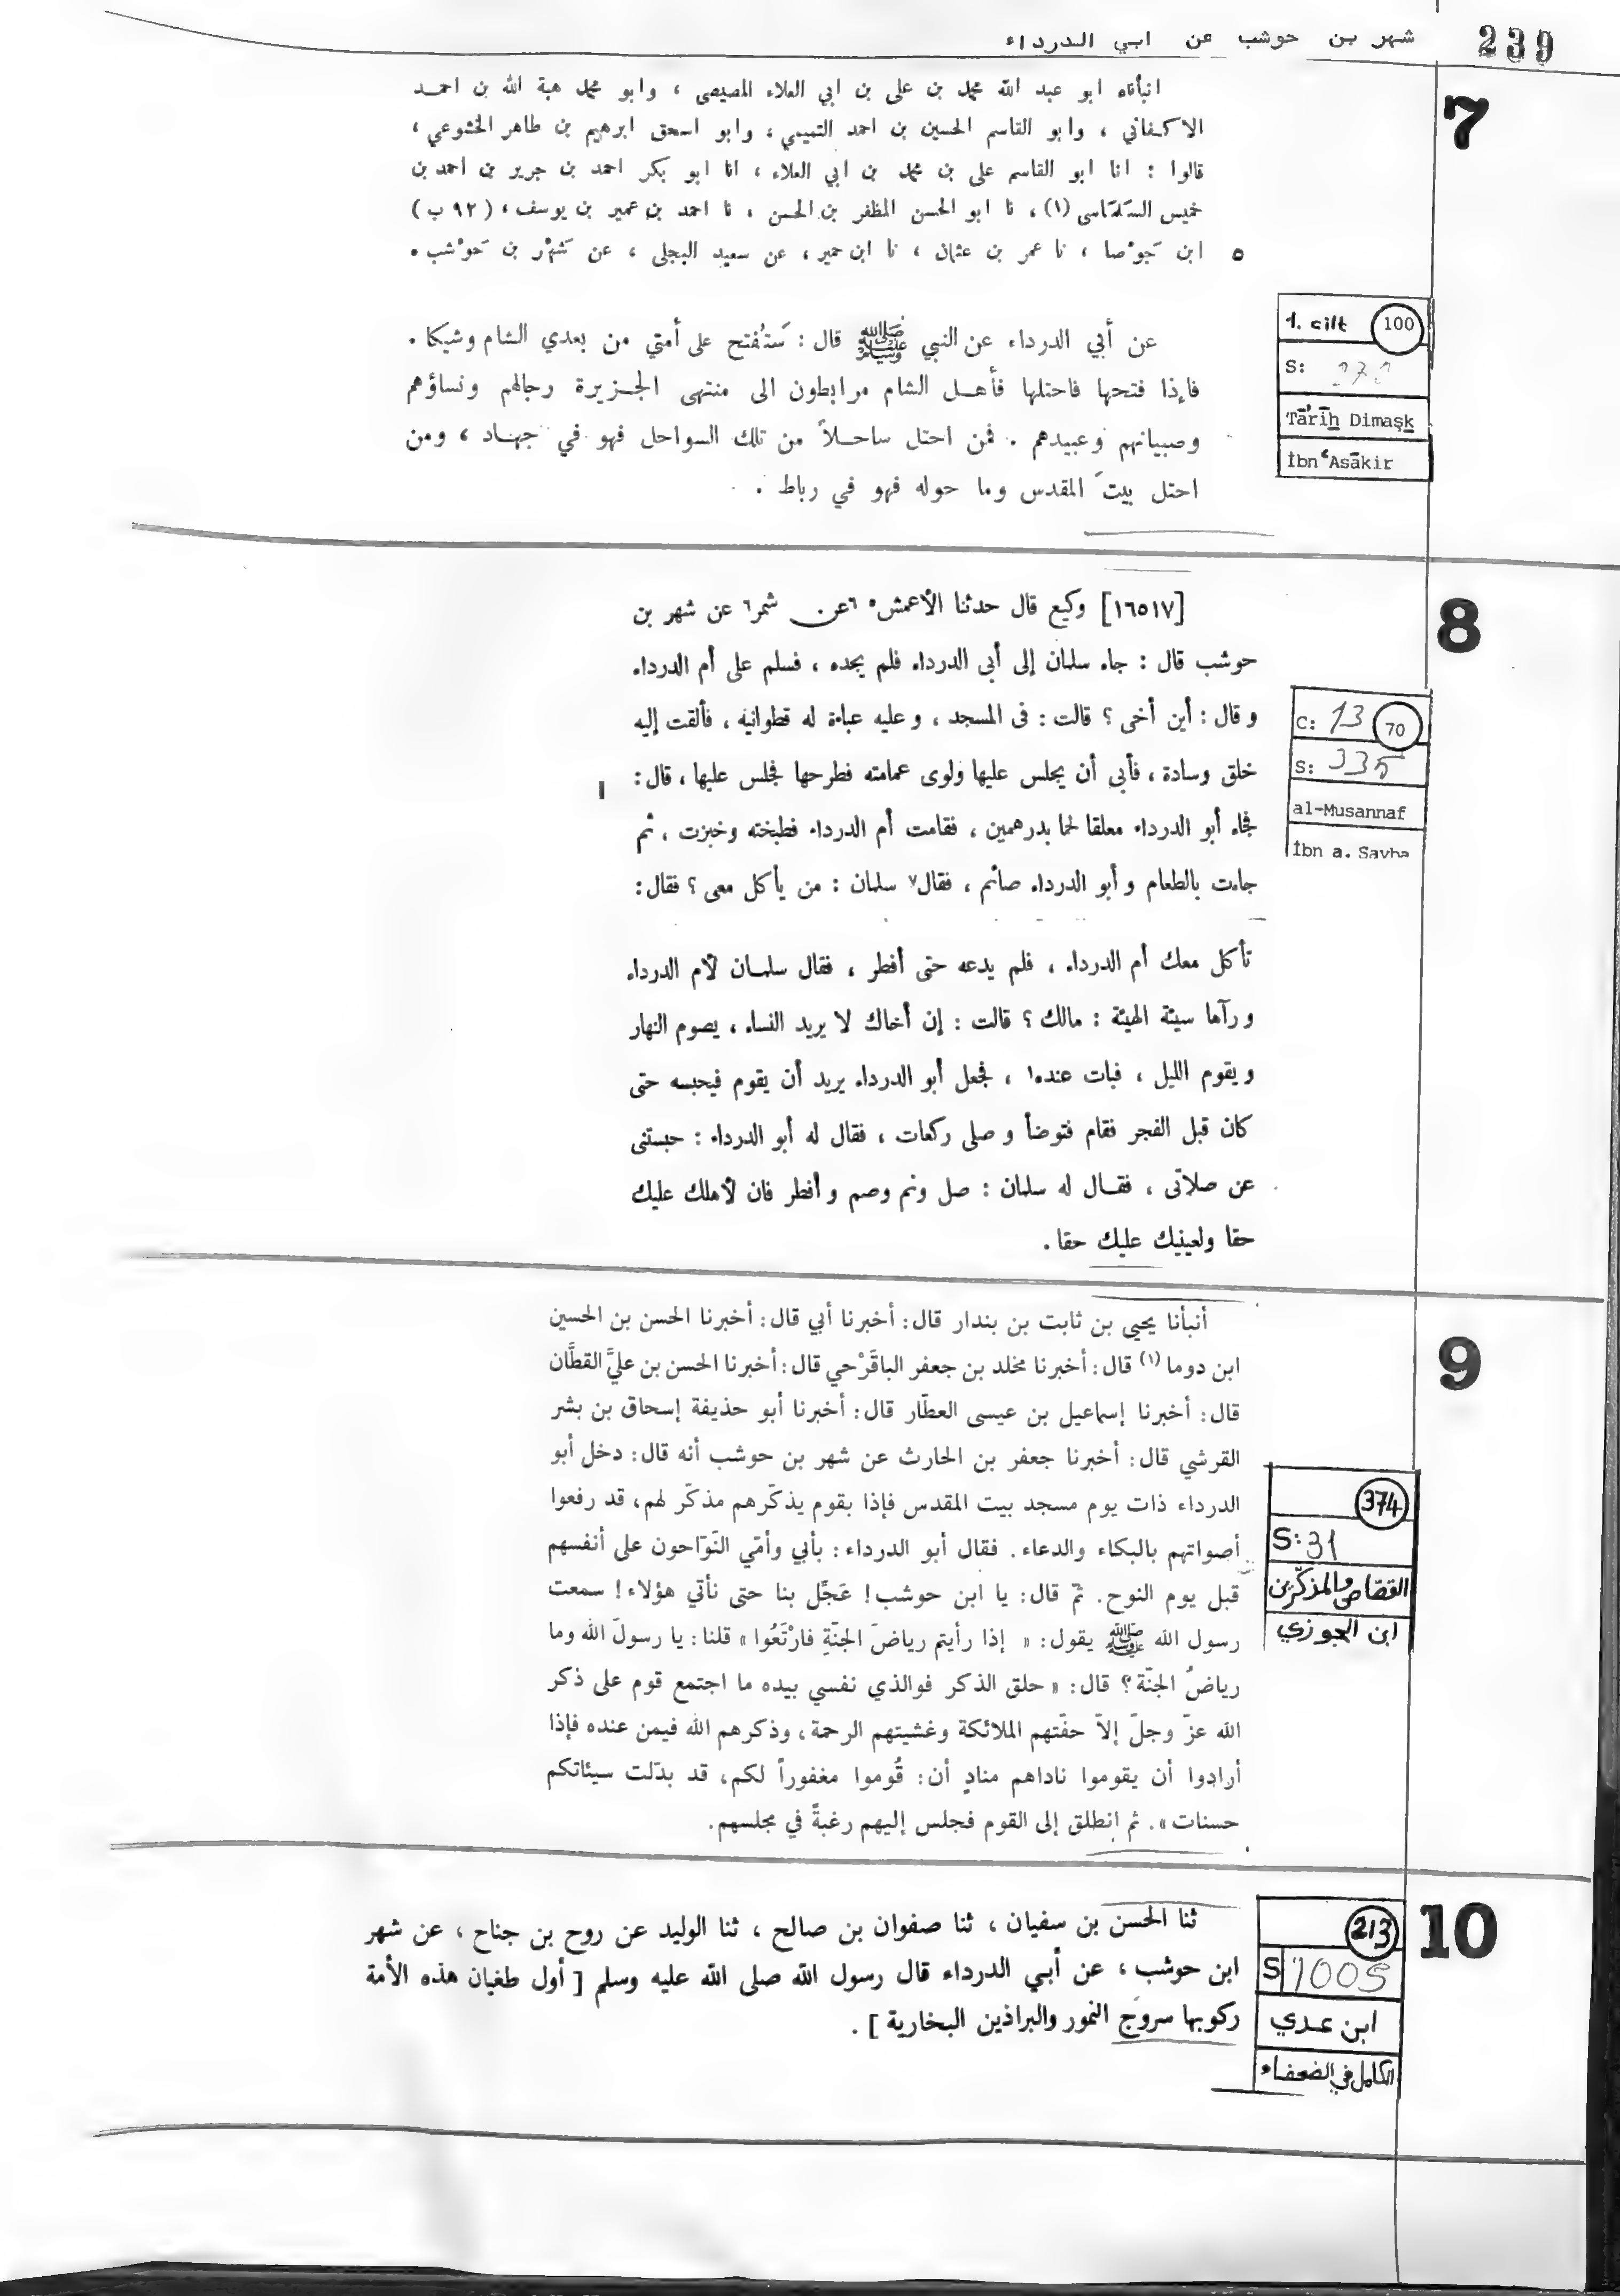 شهر بن حوشب عن ابي الدرداء
239
7
انبأناه ابو عبد الله محمد بن على بن ابي العلاء المصيصى ، وابو محمد هبة الله بن احمد
الاكفاني ، وابو القاسم الحسين بن احمد التميمي ، وابو اسحق ابرهيم بن طاهر الخشوعي ،
قالوا : انا ابو القاسم على بن محمد بن ابي العلاء ، انا ابو بكر احمد بن جرير بن احمد بن
خميس السَلَمَاسى (١) ، نا ابو الحسن المظفر بن الحسن ، نا احمد بن عمير بن يوسف ، (٩٢ ب)
٥ ابن جَوْصا ، نا عمر بن عثمان ، نا ابن حمير ، عن سعيد البجلى ، عن شَهْر بن حَوْشب .
عن أبي الدرداء عن النبي ﷺ قال : سَتُفتح على أمتي من بعدي الشام وشيكا .
فإذا فتحها فاحتلها فأهل الشام مرابطون الى منتهى الجزيرة رجالهم ونساؤهم
وصبيانهم وعبيدهم . فمن احتل ساحلاً من تلك السواحل فهو في جهاد ، ومن
احتل بيتَ المقدس وما حوله فهو في رباط .
1. cilt 100
S:
Tārīh Dimaşk
İbn ʿAsākir
8
[١٦٥١٧] وكيع قال حدثنا الأعمش ٥ ٦عن شمر٦ عن شهر بن
حوشب قال : جاء سلمان إلى أبى الدرداء فلم يجده ، فسلم على أم الدرداء
وقال : أين أخى ؟ قالت : فى المسجد ، وعليه عباءة له قطوانية ، فألقت إليه
خلق وسادة ، فأبى أن يجلس عليها ولوى عمامته فطرحها فجلس عليها ، قال :
فجاء أبو الدرداء معلقا لحما بدرهمين ، فقامت أم الدرداء فطبخته وخبزت ، ثم
جاءت بالطعام وأبو الدرداء صائم ، فقال٧ سلمان : من يأكل معى ؟ فقال :
تأكل معك أم الدرداء ، فلم يدعه حتى أفطر ، فقال سلمان لأم الدرداء
ورآها سيئة الهيئة : مالك ؟ قالت : إن أخاك لا يريد النساء ، يصوم النهار
ويقوم الليل ، فبات عنده١ ، فجعل أبو الدرداء يريد أن يقوم فيحبسه حتى
كان قبل الفجر فقام فتوضأ وصلى ركعات ، فقال له أبو الدرداء : حبستنى
عن صلاتى ، فقال له سلمان : صل ونم وصم وأفطر فان لأهلك عليك
حقا ولعينيك عليك حقا .
C: 13 70
S: 335
al-Musannaf
İbn a. Şayba
9
أنبأنا يحيى بن ثابت بن بندار قال: أخبرنا أبي قال: أخبرنا الحسن بن الحسين
ابن دوما (١) قال: أخبرنا مخلد بن جعفر الباقَرْحي قال: أخبرنا الحسن بن عليَّ القطَّان
قال: أخبرنا إسماعيل بن عيسى العطّار قال: أخبرنا أبو حذيفة إسحاق بن بشر
القرشي قال: أخبرنا جعفر بن الحارث عن شهر بن حوشب أنه قال: دخل أبو
الدرداء ذات يوم مسجد بيت المقدس فإذا بقوم يذكّرهم مذكّر لهم، قد رفعوا
أصواتهم بالبكاء والدعاء. فقال أبو الدرداء: بأبي وأمّي النَوّاحون على أنفسهم
قبل يوم النوح. ثمّ قال: يا ابن حوشب! عَجِّل بنا حتى نأتي هؤلاء! سمعت
رسول الله ﷺ يقول: « إذا رأيتم رياضَ الجنّةِ فارْتَعُوا » قلنا: يا رسولَ الله وما
رياضُ الجنّة؟ قال: « حلق الذكر فوالذي نفسي بيده ما اجتمع قوم على ذكر
الله عزّ وجلّ إلاّ حفّتهم الملائكة وغشيتهم الرحمة، وذكرهم الله فيمن عنده فإذا
أرادوا أن يقوموا ناداهم منادٍ أن: قُوموا مغفوراً لكم، قد بدّلت سيئاتكم
حسنات». ثم انطلق إلى القوم فجلس إليهم رغبةً في مجلسهم.
374
S: 31
القصّاص والمذكّرين
ابن الجوزي
10
ثنا الحسن بن سفيان ، ثنا صفوان بن صالح ، ثنا الوليد عن روح بن جناح ، عن شهر
ابن حوشب ، عن أبي الدرداء قال رسول الله صلى الله عليه وسلم [ أول طغيان هذه الأمة
ركوبها سروج النمور والبراذين البخارية ] .
213
S 1005
ابن عدي
الكامل في الضعفاء